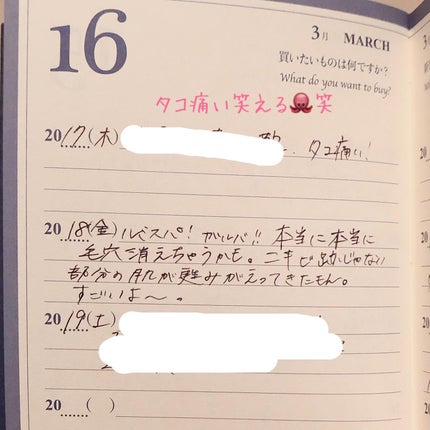 16
3月 MARCH
買いたいものは何ですか?
What do you want to buy?
タコ痛い笑える🐙笑
2017(木) タコ痛い!
2018(金) ルベスパ! ガルバ!! 本当に本当に
毛穴消えちゃうかも。ニキビ跡じゃない
部分の肌が甦みがえってきたもん。
すごいよ〜。
2019(土)
20 ( )